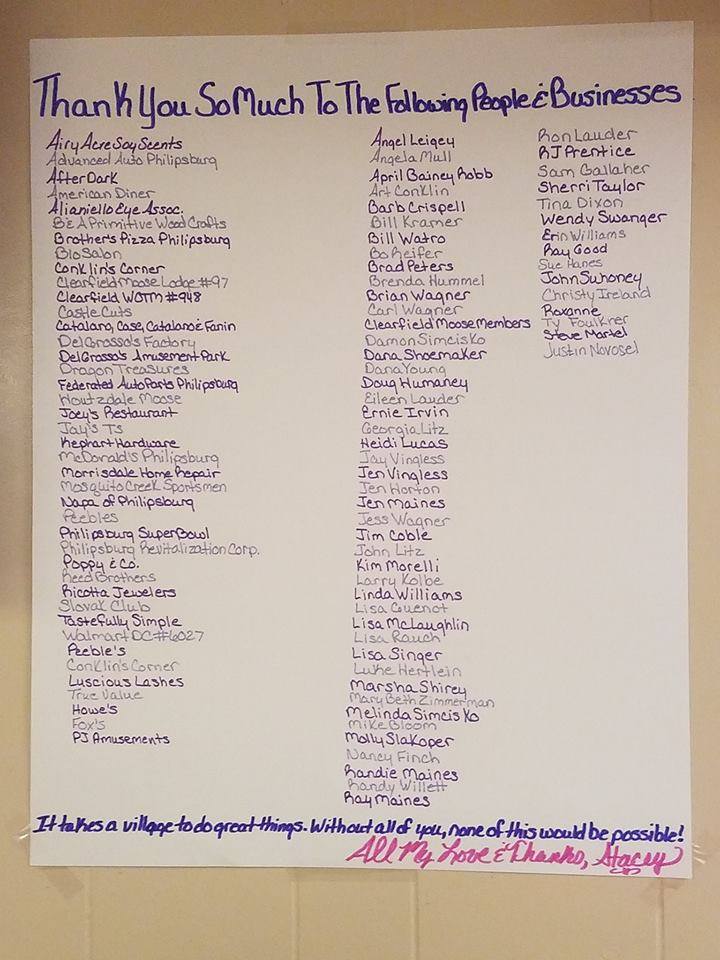 Thank You So Much To The Following People & Businesses
Airy Acre Soy Scents
Advanced Auto Philipsburg
After Dark
American Diner
Alianiello Eye Assoc.
B&A Primitive Wood Crafts
Brother's Pizza Philipsburg
Blo Salon
Conklin's Corner
Clearfield Moose Lodge #97
Clearfield WOTM #948
Castle Cuts
Catalano, Case, Catalano & Fanin
DelGrosso's Factory
DelGrosso's Amusement Park
Dragon Treasures
Federated Auto Parts Philipsburg
Houtzdale Moose
Joey's Restaurant
Jay's Ts
Kephart Hardware
McDonald's Philipsburg
Morrisdale Home Repair
Mosquito Creek Sportsmen
Napa of Philipsburg
Peebles
Philipsburg SuperBowl
Philipsburg Revitalization Corp.
Poppy & Co.
Reed Brothers
Ricotta Jewelers
Slovak Club
Tastefully Simple
Walmart DC #6027
Peeble's
Conklin's Corner
Luscious Lashes
True Value
Howe's
Fox's
PJ Amusements
Angel Leigey
Angela Mull
April Bainey Robb
Art Conklin
Barb Crispell
Bill Kramer
Bill Watro
Bo Reifer
Brad Peters
Brenda Hummel
Brian Wagner
Carl Wagner
Clearfield Moose Members
Damon Simcisko
Dana Shoemaker
Dana Young
Doug Humaney
Eileen Lauder
Ernie Irvin
Georgia Litz
Heidi Lucas
Jay Vingless
Jen Vingless
Jen Horton
Jen Maines
Jess Wagner
Jim Coble
John Litz
Kim Morelli
Larry Kolbe
Linda Williams
Lisa Guenot
Lisa McLaughlin
Lisa Rauch
Lisa Singer
Luke Hertlein
Marsha Shirey
Mary Beth Zimmerman
Melinda Simcisko
Mike Bloom
Molly Slakoper
Nancy Finch
Randie Maines
Randy Willett
Ray Maines
Ron Lauder
RJ Prentice
Sam Gallaher
Sherri Taylor
Tina Dixon
Wendy Swanger
Erin Williams
Ray Good
Sue Hanes
John Suhoney
Christy Ireland
Roxanne
Ty Faulkner
Steve Martel
Justin Novosel
It takes a village to do great things. Without all of you, none of this would be possible!
All My Love & Thanks, Stacey